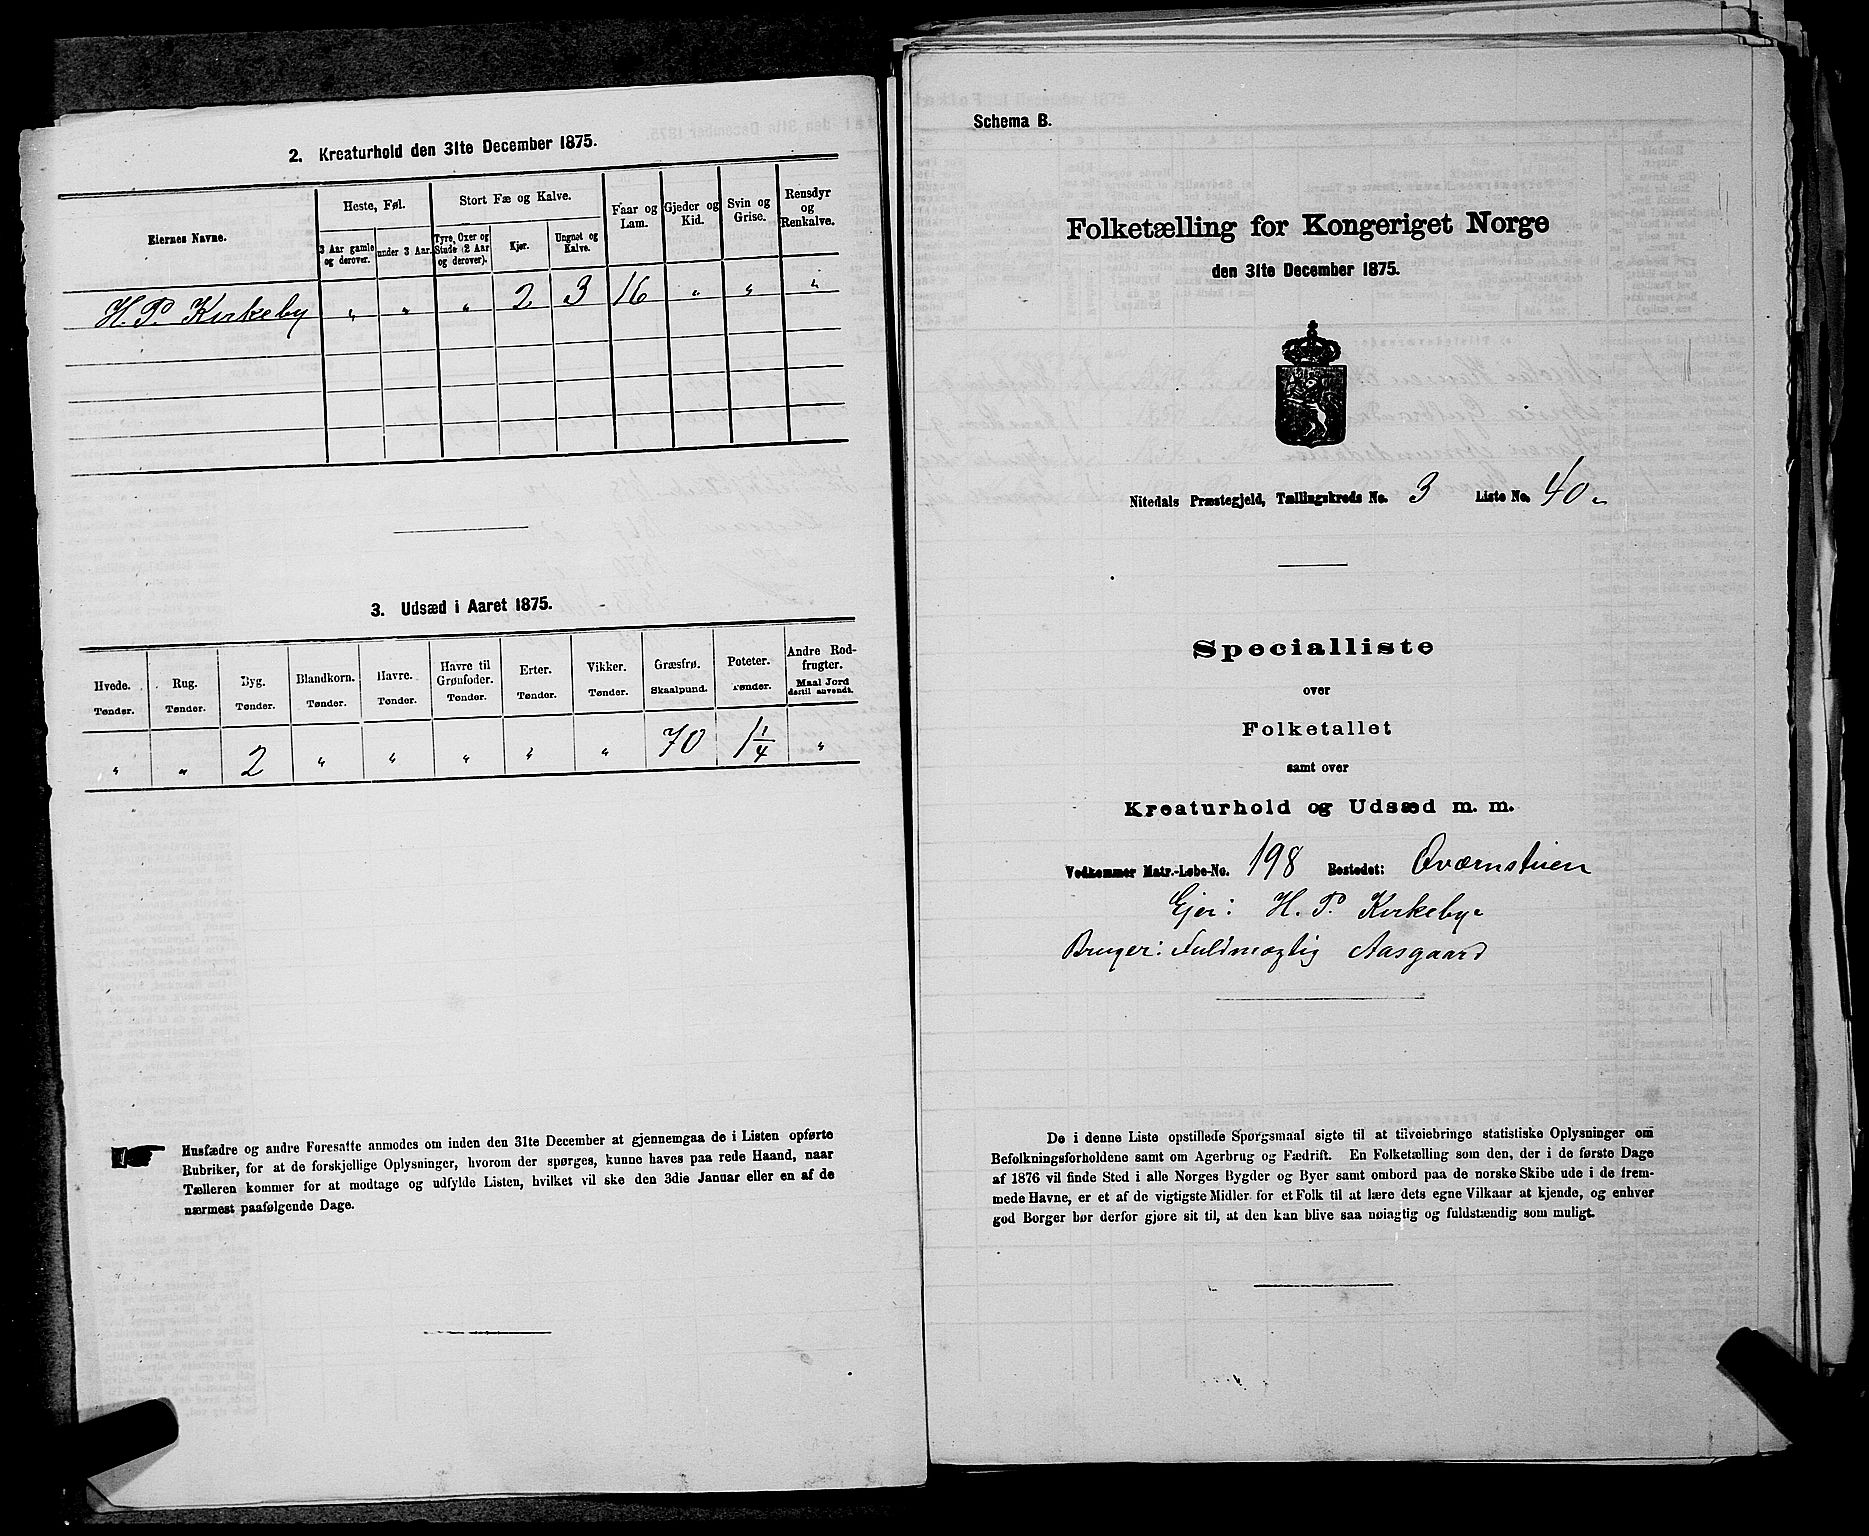 2. Kreaturhold den 31te December 1875.
Eiernes Navne.
Heste, Føl.
3 Aar gamle og derover.
under 3 Aar.
Stort Fæ og Kalve.
Tyre, Oxer og Stude (2 Aar og derover).
Kjør.
Ungnøt og Kalve.
Faar og Lam.
Gjeder og Kid.
Svin og Grise.
Rensdyr og Renkalve.
H. P. Kirkeby " " " 2 3 16 " " "
3. Udsæd i Aaret 1875.
Hvede. Tønder.
Rug. Tønder.
Byg. Tønder.
Blandkorn. Tønder.
Havre. Tønder.
Havre til Grønfoder. Tønder.
Erter. Tønder.
Vikker. Tønder.
Græsfrø. Skaalpund.
Poteter. Tønder.
Andre Rodfrugter. Maal Jord dertil anvendt.
" " 2 " " " " " 70 1 1/4 "
Husfædre og andre Foresatte anmodes om inden den 31te December at gjennemgaa de i Listen opførte
Rubriker, for at de forskjellige Oplysninger, hvorom der spørges, kunne haves paa rede Haand, naar
Tælleren kommer for at modtage og udfylde Listen, hvilket vil ske den 3die Januar eller en af de
nærmest paafølgende Dage.
Schema B.
Folketælling for Kongeriget Norge
den 31te December 1875.
Nitedals Præstegjeld, Tællingskreds No. 3 Liste No. 40
Specialliste
over
Folketallet
samt over
Kreaturhold og Udsæd m. m.
Vedkommer Matr.-Løbe-No. 198 Bostedet: Qværnstuen
Ejer: H. P. Kirkeby
Bruger: Fuldmægtig Aasgaard
De i denne Liste opstillede Spørgsmaal sigte til at tilveiebringe statistiske Oplysninger om
Befolkningsforholdene samt om Agerbrug og Fædrift. En Folketælling som den, der i de første Dage
af 1876 vil finde Sted i alle Norges Bygder og Byer samt ombord paa de norske Skibe ude i de frem-
mede Havne, er et af de vigtigste Midler for et Folk til at lære dets egne Vilkaar at kjende, og enhver
god Borger bør derfor gjøre sit til, at den kan blive saa nøiagtig og fuldstændig som muligt.